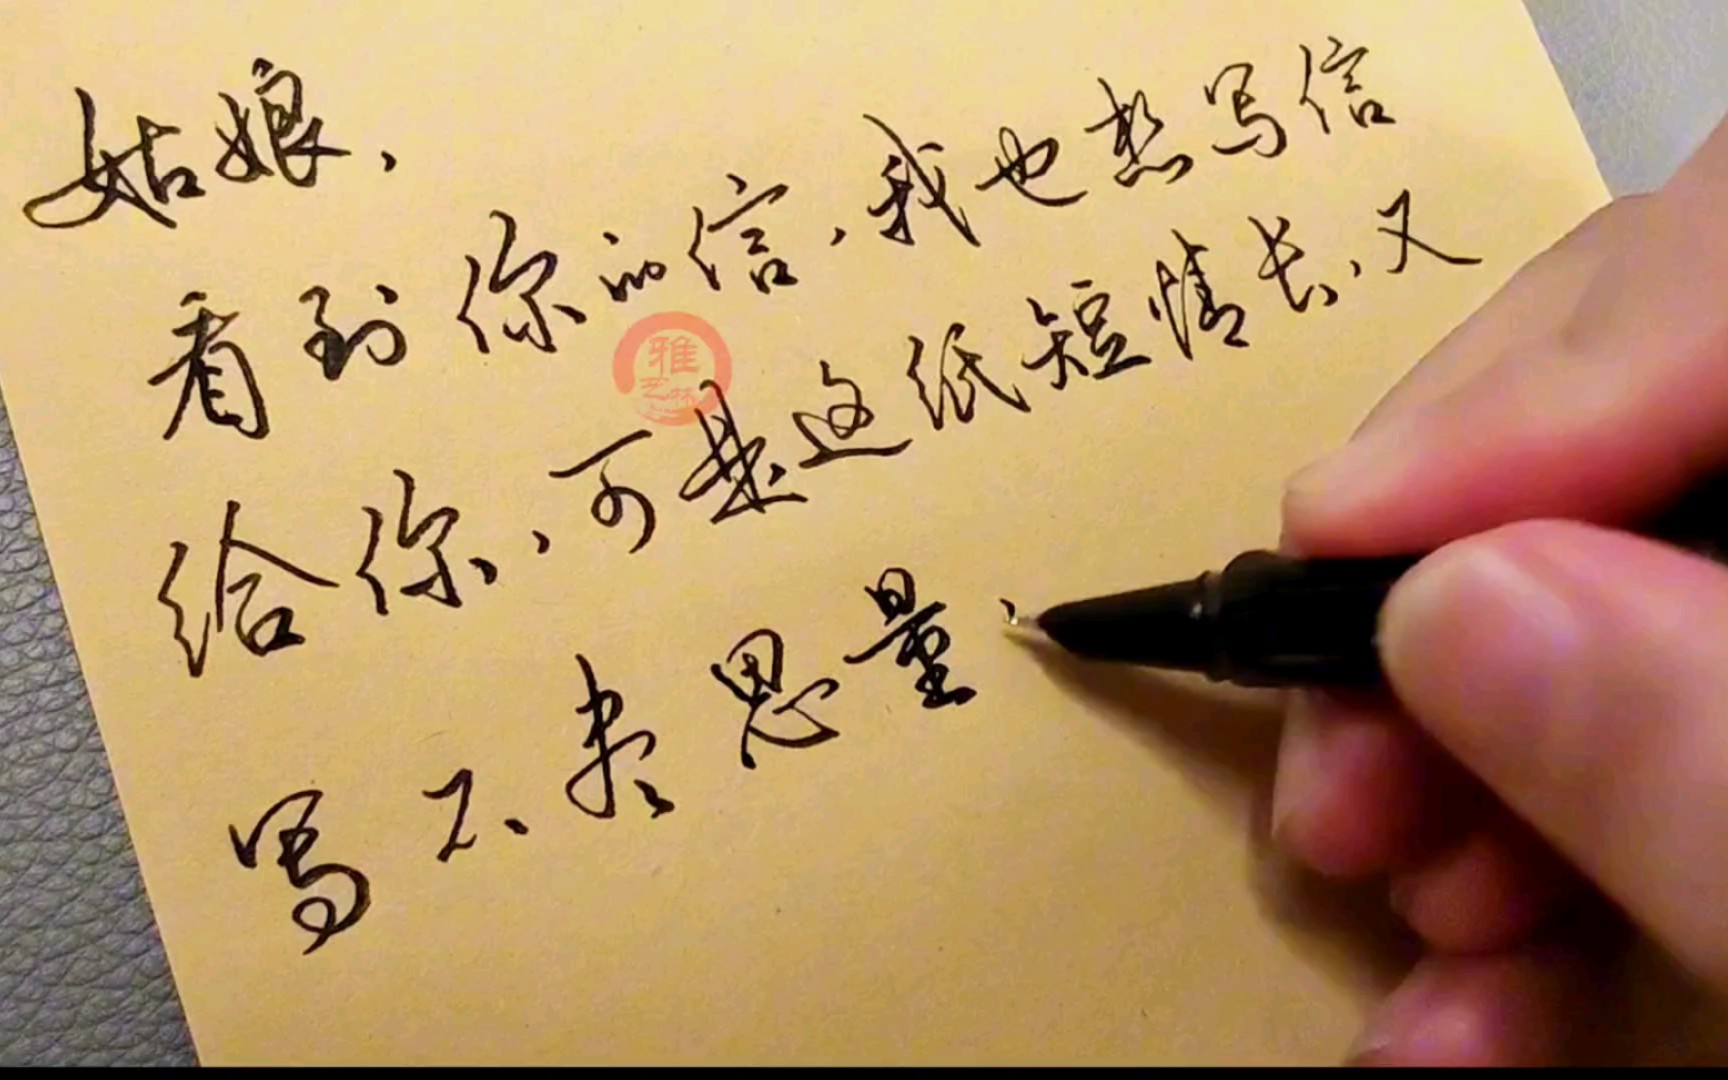 姑娘，
看到你的信，我也想写信
给你，可是这纸短情长，又
写不尽思量
雅
艺林